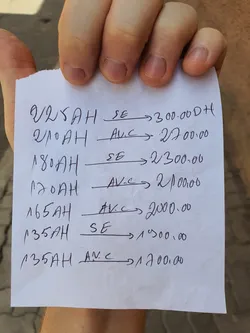 225AH SE → 300.00DH
210AH AV.C → 2700.00
180AH SE → 2300.00
170AH AV.C → 2100.00
165AH AV.C → 2000.00
135AH SE → 1900.00
135AH AV.C → 1700.00